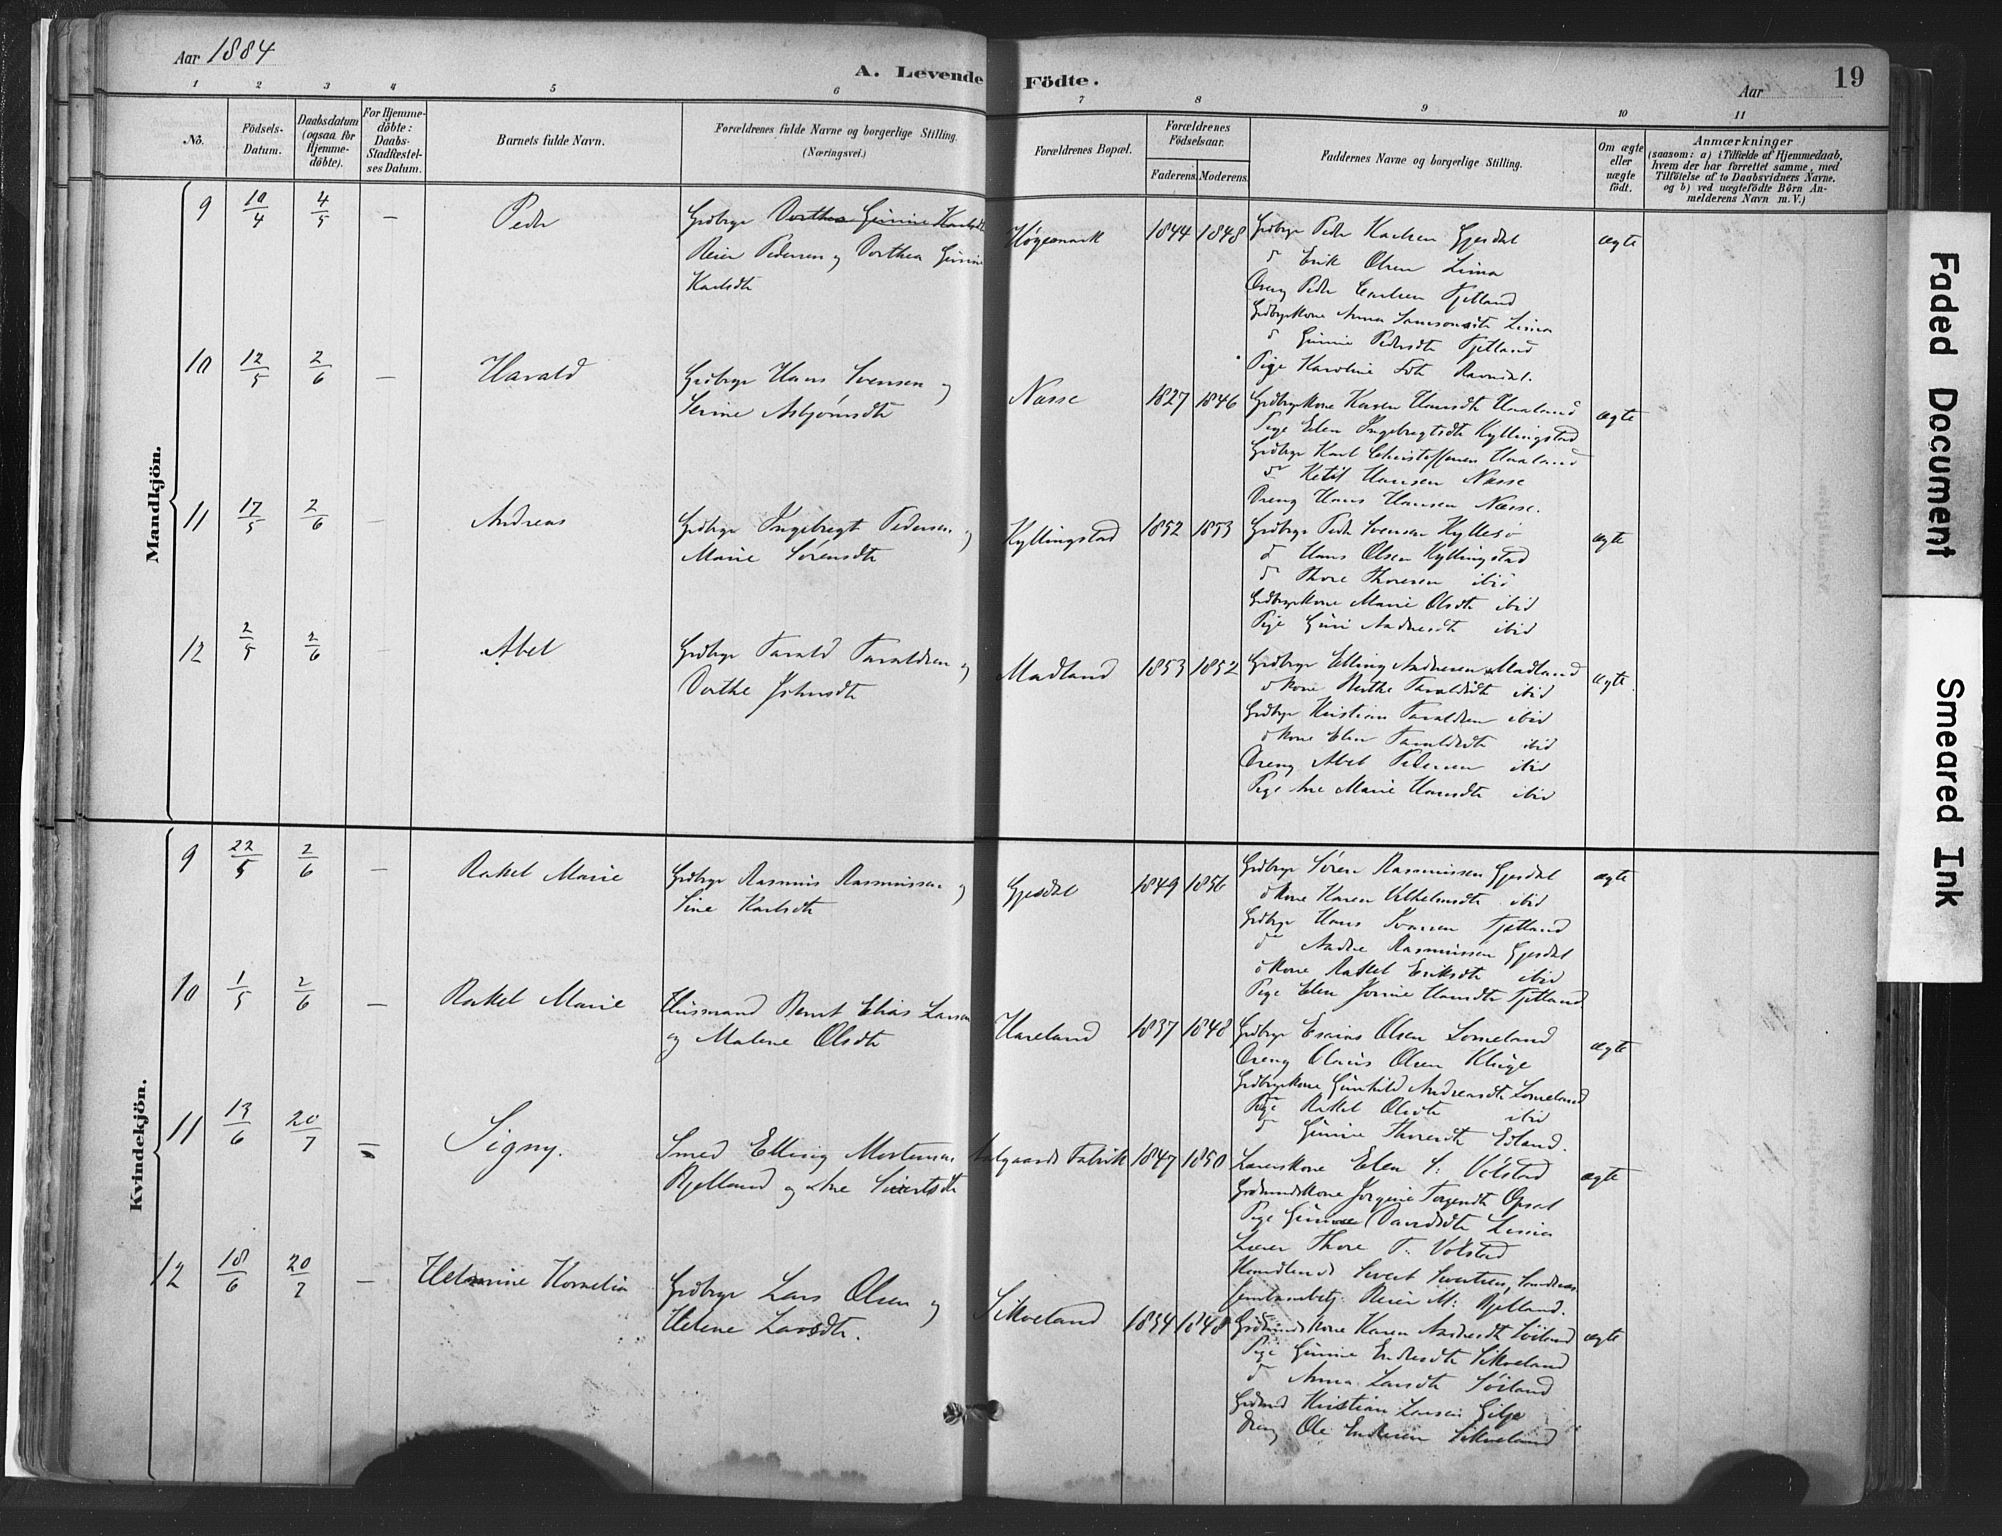 Aar 1884
A. Levende Födte.
Aar
19
1 2 3 4 5 6 7 8 9 10 11
No.
Födsels-Datum.
Daabsdatum (ogsaa for Hjemme-döbte).
For Hjemme-döbte: Daabs-Stadfæstel-ses Datum.
Barnets fulde Navn.
Forældrenes fulde Navne og borgerlige Stilling.
(Næringsvei.)
Forældrenes Bopæl.
Forældrenes Födselsaar.
Faderens. Moderens.
Faddernes Navne og borgerlige Stilling.
Om ægte eller uægte födt.
Anmærkninger
(saasom: a) i Tilfælde af Hjemmedaab,
hvem der har forrettet samme, med
Tilföielse af to Daabsvidners Navne.
og b) ved uægtefödte Börn An-
melderens Navn m. V.)
Mandkjön.
9 10/4 4/5 – Peder
Grdbrgr Dorthea Gurine Karlsdt
Reier Pedersen og Dorthea Gurine
Karlsdtr
Høgemark 1844 1848
Grdbrgr Peder Karlsen Gjesdal
do Erik Olsen Lima
Dreng Peder Carlsen Fjelland
Grdbrgrkone Anna Samsonsdtr Lima
do Gurine Pedersdtr Fjelland
Pige Karoline Ravndal.
ægte
10 12/5 2/6 – Harald
Grdbrgr Hans Svensen og
Serine Asbjörnsdtr
Næsse 1827 1846
Grdbrgrkone Karen Hansdtr Haaland
Pige Elen Ingebregtsdtr Kyllingstad
Grdbrgr Karl Christoffersen Haaland
do Ketil Hansen Næsse
Dreng Hans Hansen Næsse.
ægte
11 17/5 2/6 – Andreas
Grdbrgr Ingebregt Pedersen og
Marie Sörensdtr
Kyllingstad 1852 1853
Grdbrgr Peder Svensen Kyllesö
do Hans Olsen Kyllingstad
do Thore Thoresen ibid
Grdbrgrkone Marie Olsdtr ibid
Pige Guri Andersdtr ibid
ægte
12 2/5 2/6 – Abel
Grdbrgr Tarald Taraldsen og
Dorthe Johnsdtr
Madland 1853 1852
Grdbrgr Elling Andersen Madland
do kone Berthe Taraldsdtr ibid
Grdbrgr Kristian Taraldsen ibid
do kone Elen Taraldsdtr ibid
Dreng Abel Pedersen ibid
Pige Ane Marie Hansdtr ibid
ægte
Kvindekjön.
9 22/5 2/6 – Rakel Marie
Grdbrgr Rasmus Rasmussen og
Sine Karlsdtr
Gjesdal 1849 1856
Grdbrgr Sören Rasmussen Gjesdal
do kone Karen Vilhelmsdtr ibid
Grdbrgr Hans Svansen Fjelland
do Andre Rasmussen Gjesdal
do kone Rakel Eriksdtr ibid
Pige Elen Jorine Hansdtr Fjelland
ægte
10 1/5 2/6 – Rakel Marie
Husmand Bernt Elias Larsen
og Malene Olsdtr
Haveland 1837 1848
Grdbrgr Esaias Olsen Lomeland
Dreng Olaus Olsen Kluge
Grdbrgrkone Gunhild Andreasdtr Lomeland
Pige Rakel Olsdtr ibid
do Gurine Thoresdtr Edland.
ægte
11 13/6 20/7 = Signy.
Smed Elling Mortensen
Bjelland og Ane Sivertsdtr
Aalgaards Fabrik 1847 1850
Lærerkone Elen S: Volstad
Grdmandskone Jorgine Torgersdtr Opsal
Pige Gurine Davidsdtr Lima
Lærer Thore T: Volstad
Handlende Sivert Sivertsen, Sandnæs
Reier M: Bjelland.
ægte
12 18/6 20/7 – Helmine Kornelia
Grdbrgr Lars Olsen og
Helene Larsdtr.
Sikveland 1834 1848
Grdmandskone Karen Andersdtr Söiland
Pige Gurine Endresdtr Sikveland
do Anna Larsdtr Söiland
Grdmd Kristian Larsen Gilje
Dreng Ole Endresen Sikveland
ægte
Faded Document
Smeared Ink